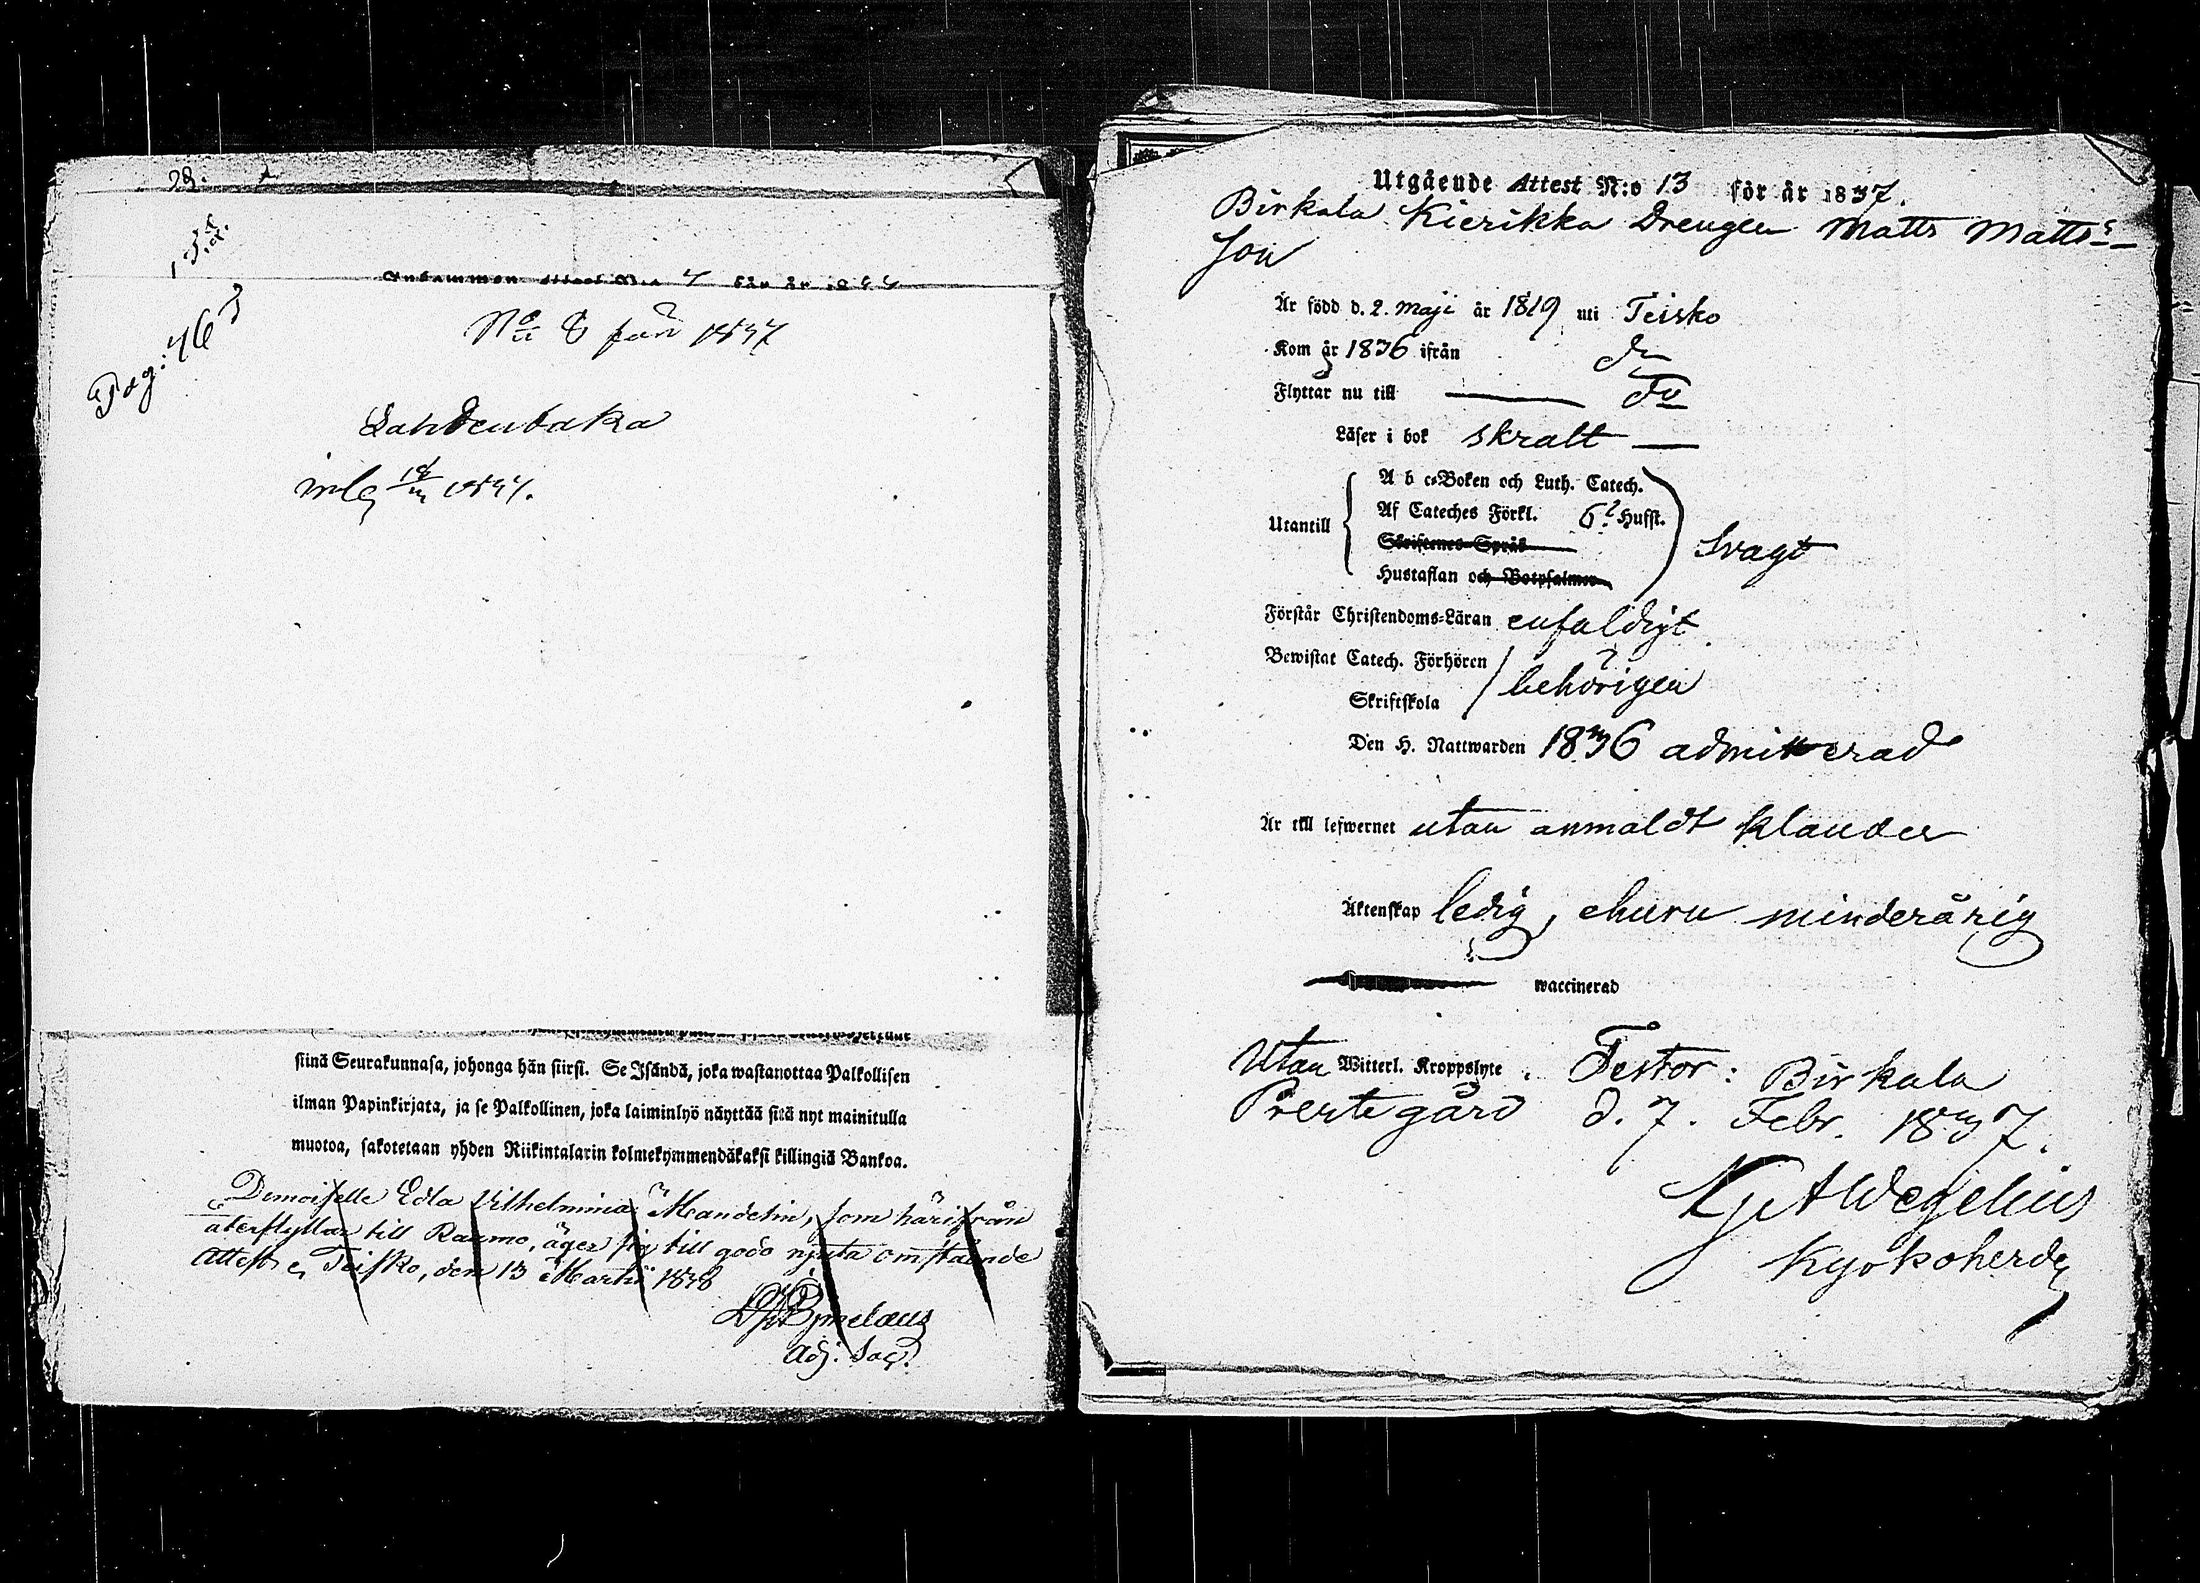 98.
Pag: 463
Inkommen Attest N:o 7 för år 18
No 8 för 1837
Lahdentaka
inlg 1837.
siinä Seurakunnasa, johonga hän siirsi. Se Isändä, joka wastanottaa Palkollisen
ilman Papinkirjata, ja se Palkollinen, joka laiminlyö näyttää sitä nyt mainitulla
muotoa, sakotetaan yhden Riikintalarin kolmekymmendäkaksi killingiä Bankoa.
Demoiselle Edla Vilhelmina Mandelin, som härifrån
återflyttar till Raumo, äger sig till godo njuta omstående
Attest, Teisko, den 13 Martii 1838
Adj. Sac.
Utgående Attest N:o 13 för år 1837.
Birkala Kierikka Drengen Matts Matts-
son
Är född d. 2. Maji år 1819 uti Teisko
Kom år 1836 ifrån do
Flyttar nu till do
Läser i bok skralt
A b c-Boken och Luth. Catech.
Af Cateches Förkl. 6 Hufst.
Utantill
Skriftenes Språk
Svagt
Hustaflan och Botpsalmer
Förstår Christendoms-Läran enfaldigt
Bewistat Catech. Förhören
behörigen
Skriftskola
Den H. Nattwarden 1836 admitterad
Är till lefwernet utan anmäldt klander
Äktenskap ledig, ehuru minderårig
waccinerad
Utan Witterl. Kroppslyte. Testor: Birkala
Prestegård d. 7. Febr. 1837.
Wegelius
Kyrkoherde